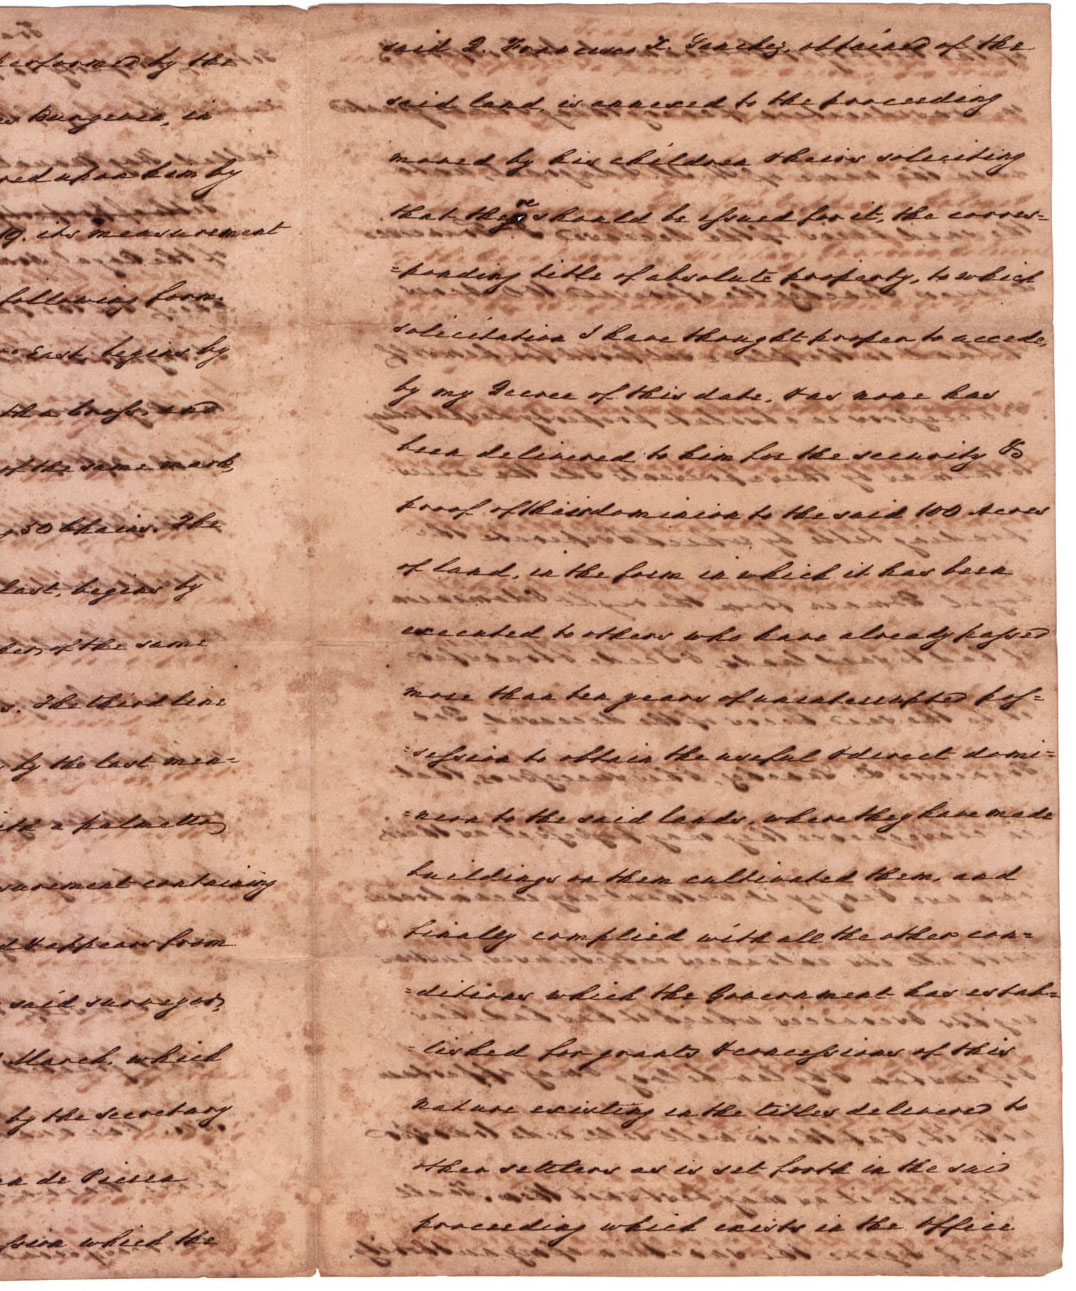 performed by the
Burgevin, in
upon him by
its measurement
following form.
East, begins by
with a cross, and
of the same mark
50 Chains. The
East, begins by
of the same
The third line
by the last men-
with a palmetto
containing
appears from
said surveyor,
March, which
by the secretary
de Pierra
which the
said D. Francisco X. Sanchez, obtained of the
said land, is annexed to the proceeding
moved by his children & heirs soliciting
that there should be issued for it, the corres=
=ponding title of absolute property, to which
solicitation I have thought proper to accede,
by my Decree of this date. & as none has
been delivered to him for the security &
proof of this dominion to the said 100 Acres
of land, in the form in which it has been
executed to others who have already passed
more than ten years of uninterrupted pos=
=session to obtain the useful & direct domi=
=nion to the said lands, where they have made
buildings on them cultivated them, and
finally complied with all the other con=
=ditions which the Government has estab=
=lished for grants & concessions of this
nature existing in the titles delivered to
other settlers as is set forth in the said
proceeding which exists in the office